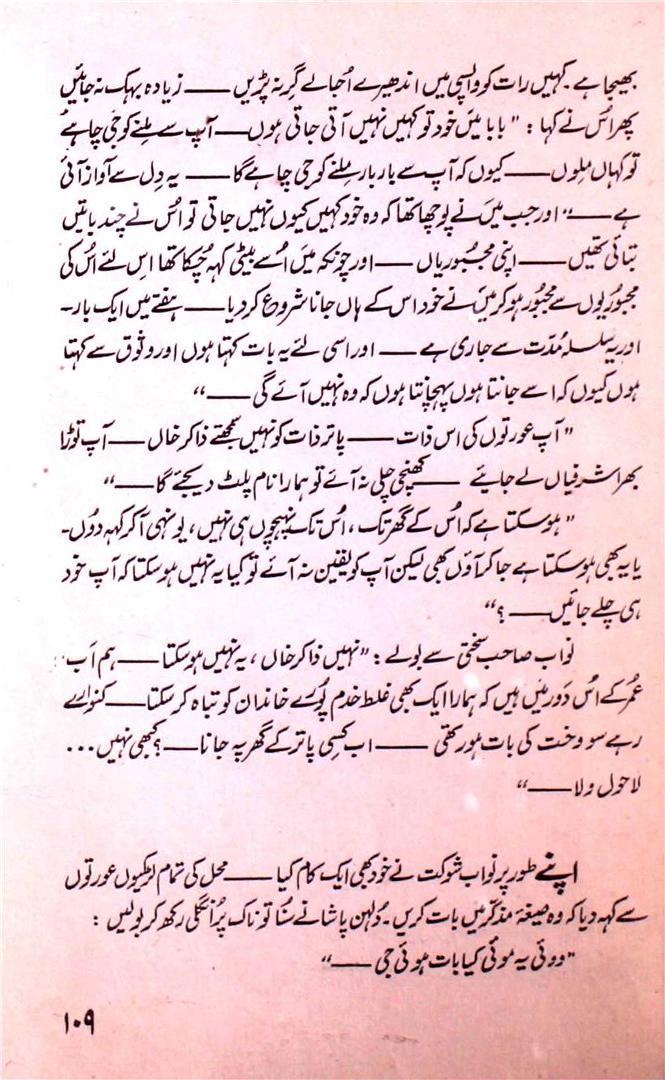 بھیجا ہے۔ کہیں رات کو واپسی میں اندھیرے اُجالے گِر نہ پڑیں —— زیادہ بہک نہ جائیں
پھر اُس نے کہا: "بابا میں خود تو کہیں نہیں آتی جاتی ہوں —— آپ سے مِلنے کو جی چاہے
تو کہاں مِلوں —— کیوں کہ آپ سے بار بار مِلنے کو جی چاہے گا —— یہ دِل سے آواز آئی
ہے ——" اور جب میں نے پوچھا تھا کہ وہ خود کہیں کیوں نہیں جاتی تو اُس نے چند باتیں
بتائی تھیں —— اپنی مجبُوریاں —— اور چونکہ میں اُسے بیٹی کہہ چُکا تھا اِس لئے اُس کی
مجبوریوں سے مجبُور ہو کر میں نے خود اس کے ہاں جانا شروع کر دیا —— ہفتے میں ایک بار۔
اور یہ سلسلہ مُدّت سے جاری ہے —— اور اسی لئے یہ بات کہتا ہوں اور وثوق سے کہتا
ہوں کیوں کہ اسے جانتا ہوں پہچانتا ہوں کہ وہ نہیں آئے گی ——"
"آپ عورتوں کی اس ذات —— پاتر ذات کو نہیں سمجھتے ذاکر خاں —— آپ توڑا
بھر اشرفیاں لے جایئے —— کھنچی چلی نہ آئے تو ہمارا نام پلٹ دیجئے گا ——"
"ہو سکتا ہے کہ اُس کے گھر تک، اُس تک پہنچوں ہی نہیں، یونہی آ کر کہہ دوں۔
یا یہ بھی ہو سکتا ہے جا کر آؤں بھی لیکن آپ کو یقین نہ آئے تو کیا یہ نہیں ہو سکتا کہ آپ خود
ہی چلے جائیں ——؟"
نواب صاحب سختی سے بولے: "نہیں ذاکر خاں، یہ نہیں ہو سکتا —— ہم اَب
عُمر کے اُس دَور میں ہیں کہ ہمارا ایک بھی غلط قدم پُورے خاندان کو تباہ کر سکتا —— کنوارے
رہے سو وخت کی بات ہور تھی —— اب کسی پاتر کے گھر پہ جانا ——؟ کبھی نہیں ...
لا حول ولا ——"
اپنے طور پر نواب شوکت نے خود بھی ایک کام کیا —— محل کی تمام لڑکیوں عورتوں
سے کہہ دیا کہ وہ صیغۂ مذکّر میں بات کریں۔ دُلہن پاشا نے سُنا تو ناک پر اُنگلی رکھ کر بولیں:
"ووئی یہ موئی کیا بات ہوئی جی ——"
۱۰۹